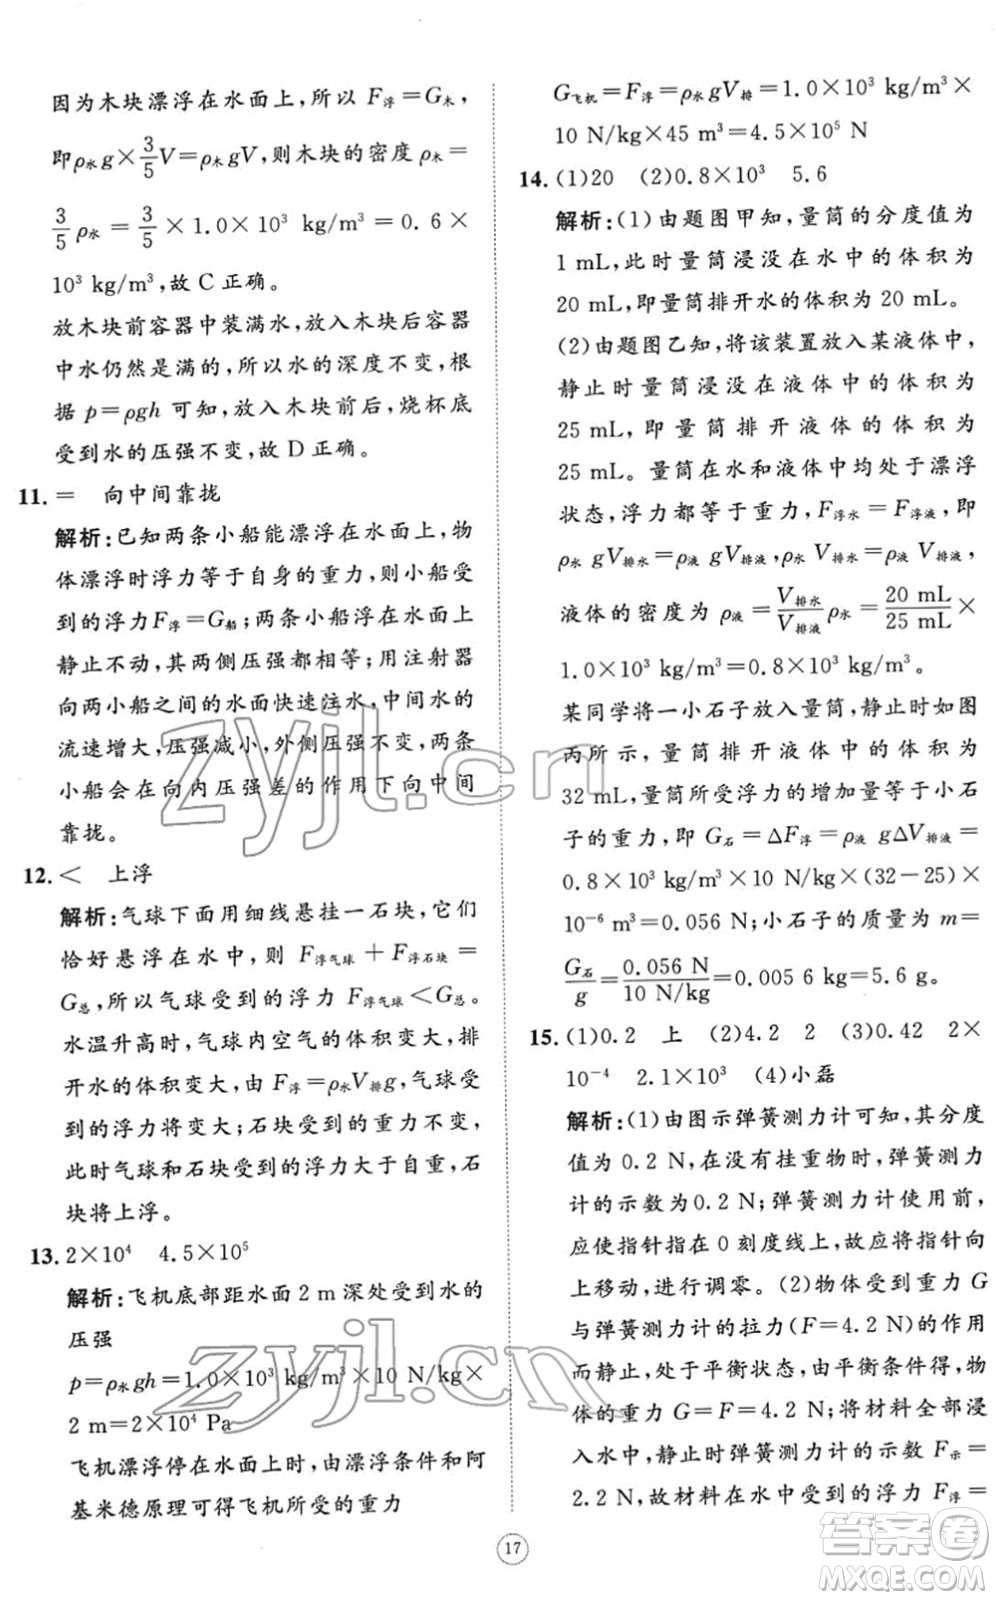 因为木块漂浮在水面上,所以 F浮=G木,
即ρ水g×3/5V=ρ木gV,则木块的密度 ρ木=
3/5ρ水=3/5×1.0×10³ kg/m³=0.6×
10³ kg/m³,故 C 正确。
放木块前容器中装满水,放入木块后容器
中水仍然是满的,所以水的深度不变,根
据 p=ρgh 可知,放入木块前后,烧杯底
受到水的压强不变,故 D 正确。
11. = 向中间靠拢
解析:已知两条小船能漂浮在水面上,物
体漂浮时浮力等于自身的重力,则小船受
到的浮力F浮=G船;两条小船浮在水面上
静止不动,其两侧压强都相等;用注射器
向两小船之间的水面快速注水,中间水的
流速增大,压强减小,外侧压强不变,两只
小船会在向内压强差的作用下向中间
靠拢。
12. < 上浮
解析:气球下面用细线悬挂一石块,它们
恰好悬浮在水中,则 F浮气球+F浮石块=
G总,所以气球受到的浮力 F浮气球<G总。
水温升高时,气球内空气的体积变大,排
开水的体积变大,由 F浮=ρ水V排g,气球受
到的浮力将变大;石块受到的重力不变,
此时气球和石块受到的浮力大于自重,石
块将上浮。
13. 2×10⁴ 4.5×10⁵
解析:飞机底部距水面 2 m 深处受到水的
压强
p=ρ水gh=1.0×10³ kg/m³×10 N/kg×
2 m=2×10⁴ Pa
飞机漂浮停在水面上时,由漂浮条件和阿
基米德原理可得飞机所受的重力
G飞机=F浮=ρ水gV排=1.0×10³ kg/m³×
10 N/kg×45 m³=4.5×10⁵ N
14. (1)20 (2)0.8×10³ 5.6
解析:(1)由题图甲知,量筒的分度值为
1 mL,此时量筒浸没在水中的体积为
20 mL,即量筒排开水的体积为 20 mL。
(2)由题图乙知,将该装置放入某液体中,
静止时量筒浸没在液体中的体积为
25 mL,即量筒排开液体的体积为
25 mL。量筒在水和液体中均处于漂浮
状态,浮力都等于重力,F浮水=F浮液,即
ρ水gV排水=ρ液gV排液,ρ水V排水=ρ液V排液,
液体的密度为 ρ液=V排水/V排液ρ水=20 mL/25 mL×
1.0×10³ kg/m³=0.8×10³ kg/m³。
某同学将一小石子放入量筒,静止时如图
丙所示,量筒排开液体中的体积为
32 mL,量筒所受浮力的增加量等于小石
子的重力,即 G石=ΔF浮=ρ液gΔV排液=
0.8×10³ kg/m³×10 N/kg×(32-25)×
10⁻⁶ m³=0.056 N;小石子的质量为 m=
G石/g=0.056 N/10 N/kg=0.005 6 kg=5.6 g。
15. (1)0.2 上 (2)4.2 2 (3)0.42 2×
10⁻⁴ 2.1×10³ (4)小磊
解析:(1)由图示弹簧测力计可知,其分度
值为 0.2 N,在没有挂重物时,弹簧测力
计的示数为0.2 N;弹簧测力计使用前,
应使指针指在 0 刻度线上,故应将指针向
上移动,进行调零。(2)物体受到重力 G
与弹簧测力计的拉力(F=4.2 N)的作用
而静止,处于平衡状态,由平衡条件得,物
体的重力 G=F=4.2 N;将材料全部浸
入水中,静止时弹簧测力计的示数 F示=
2.2 N,故材料在水中受到的浮力 F浮=
17
zyjl.cn
zyjl.cn
答案卷
MXQE.COM